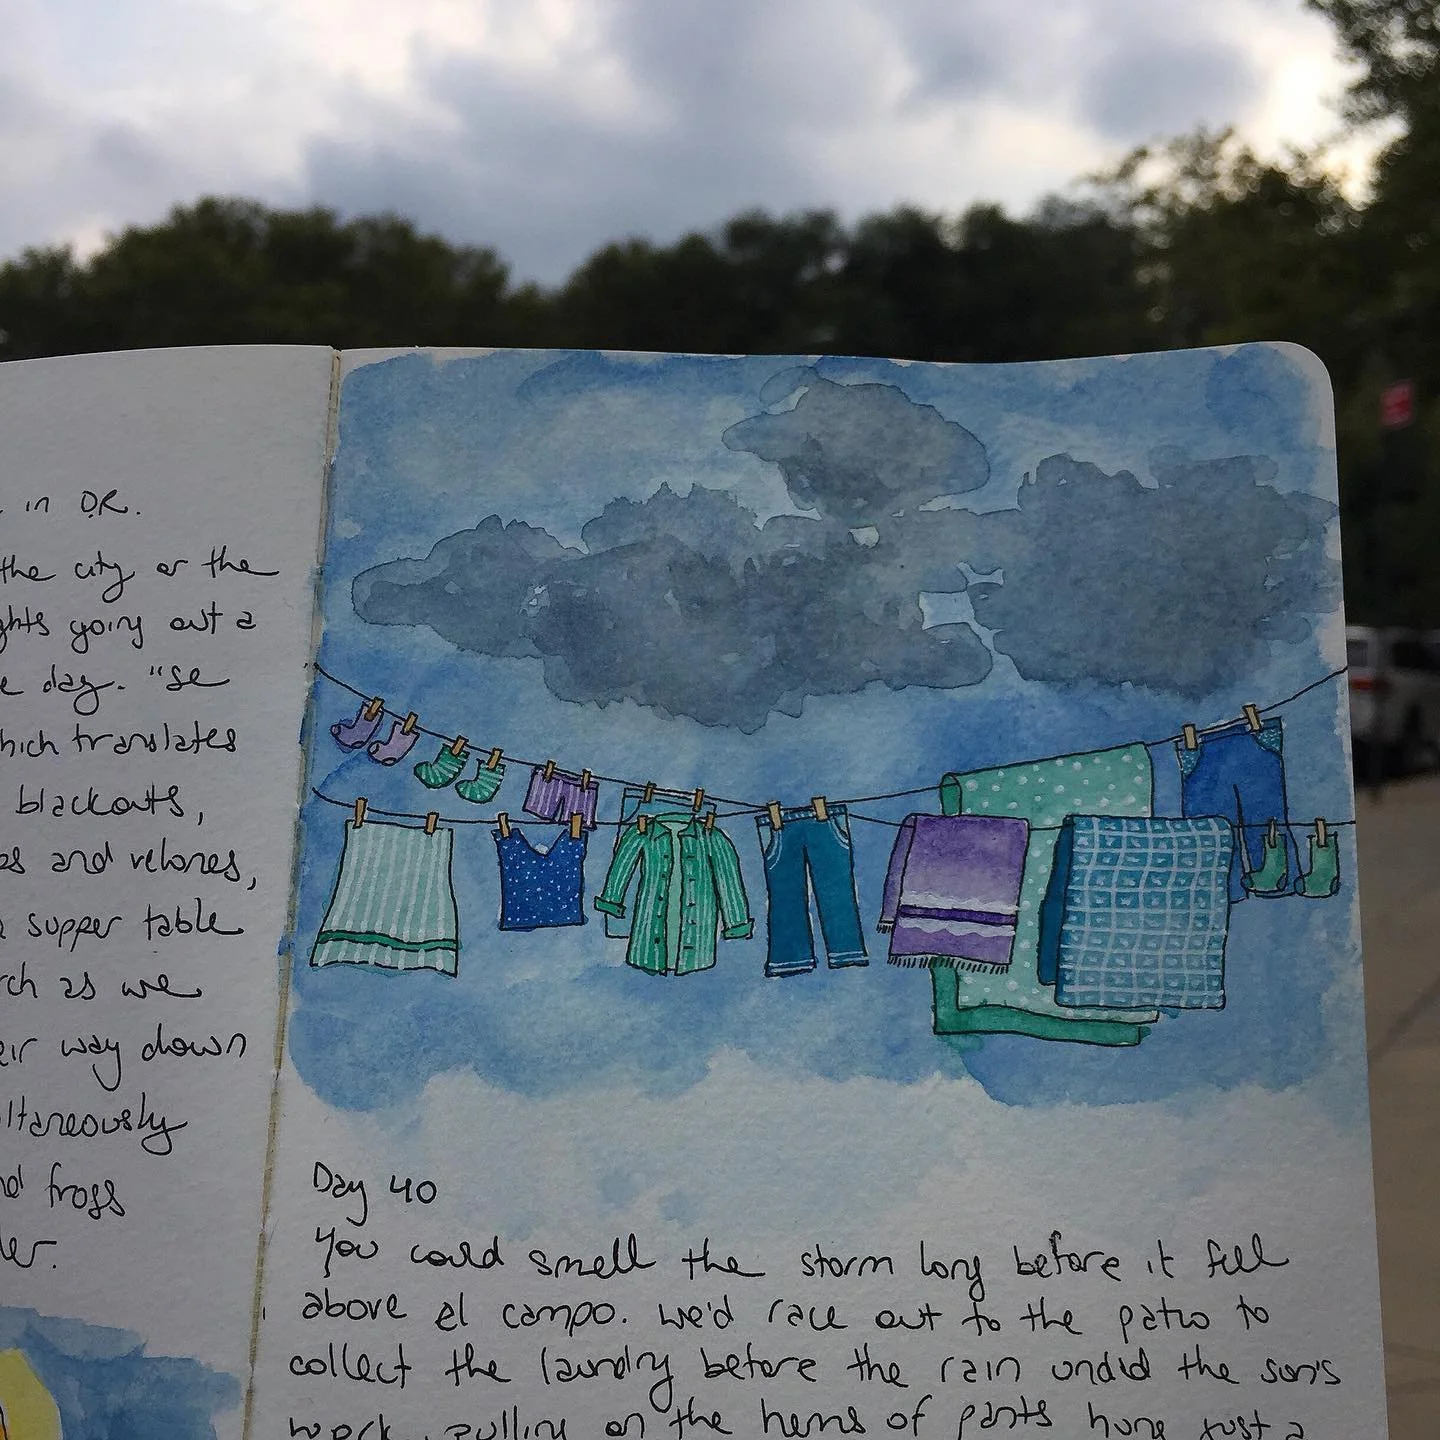 in D.R.
the city or the
ghts going out a
e day. "se
hich translates
blackouts,
os and velones,
a supper table
rch as we
eir way down
ultaneously
nd frogs
der.
Day 40
You could smell the storm long before it fell
above el campo. We'd race out to the patio to
collect the laundry before the rain undid the sun's
work, pulling on the hems of pants hung just a